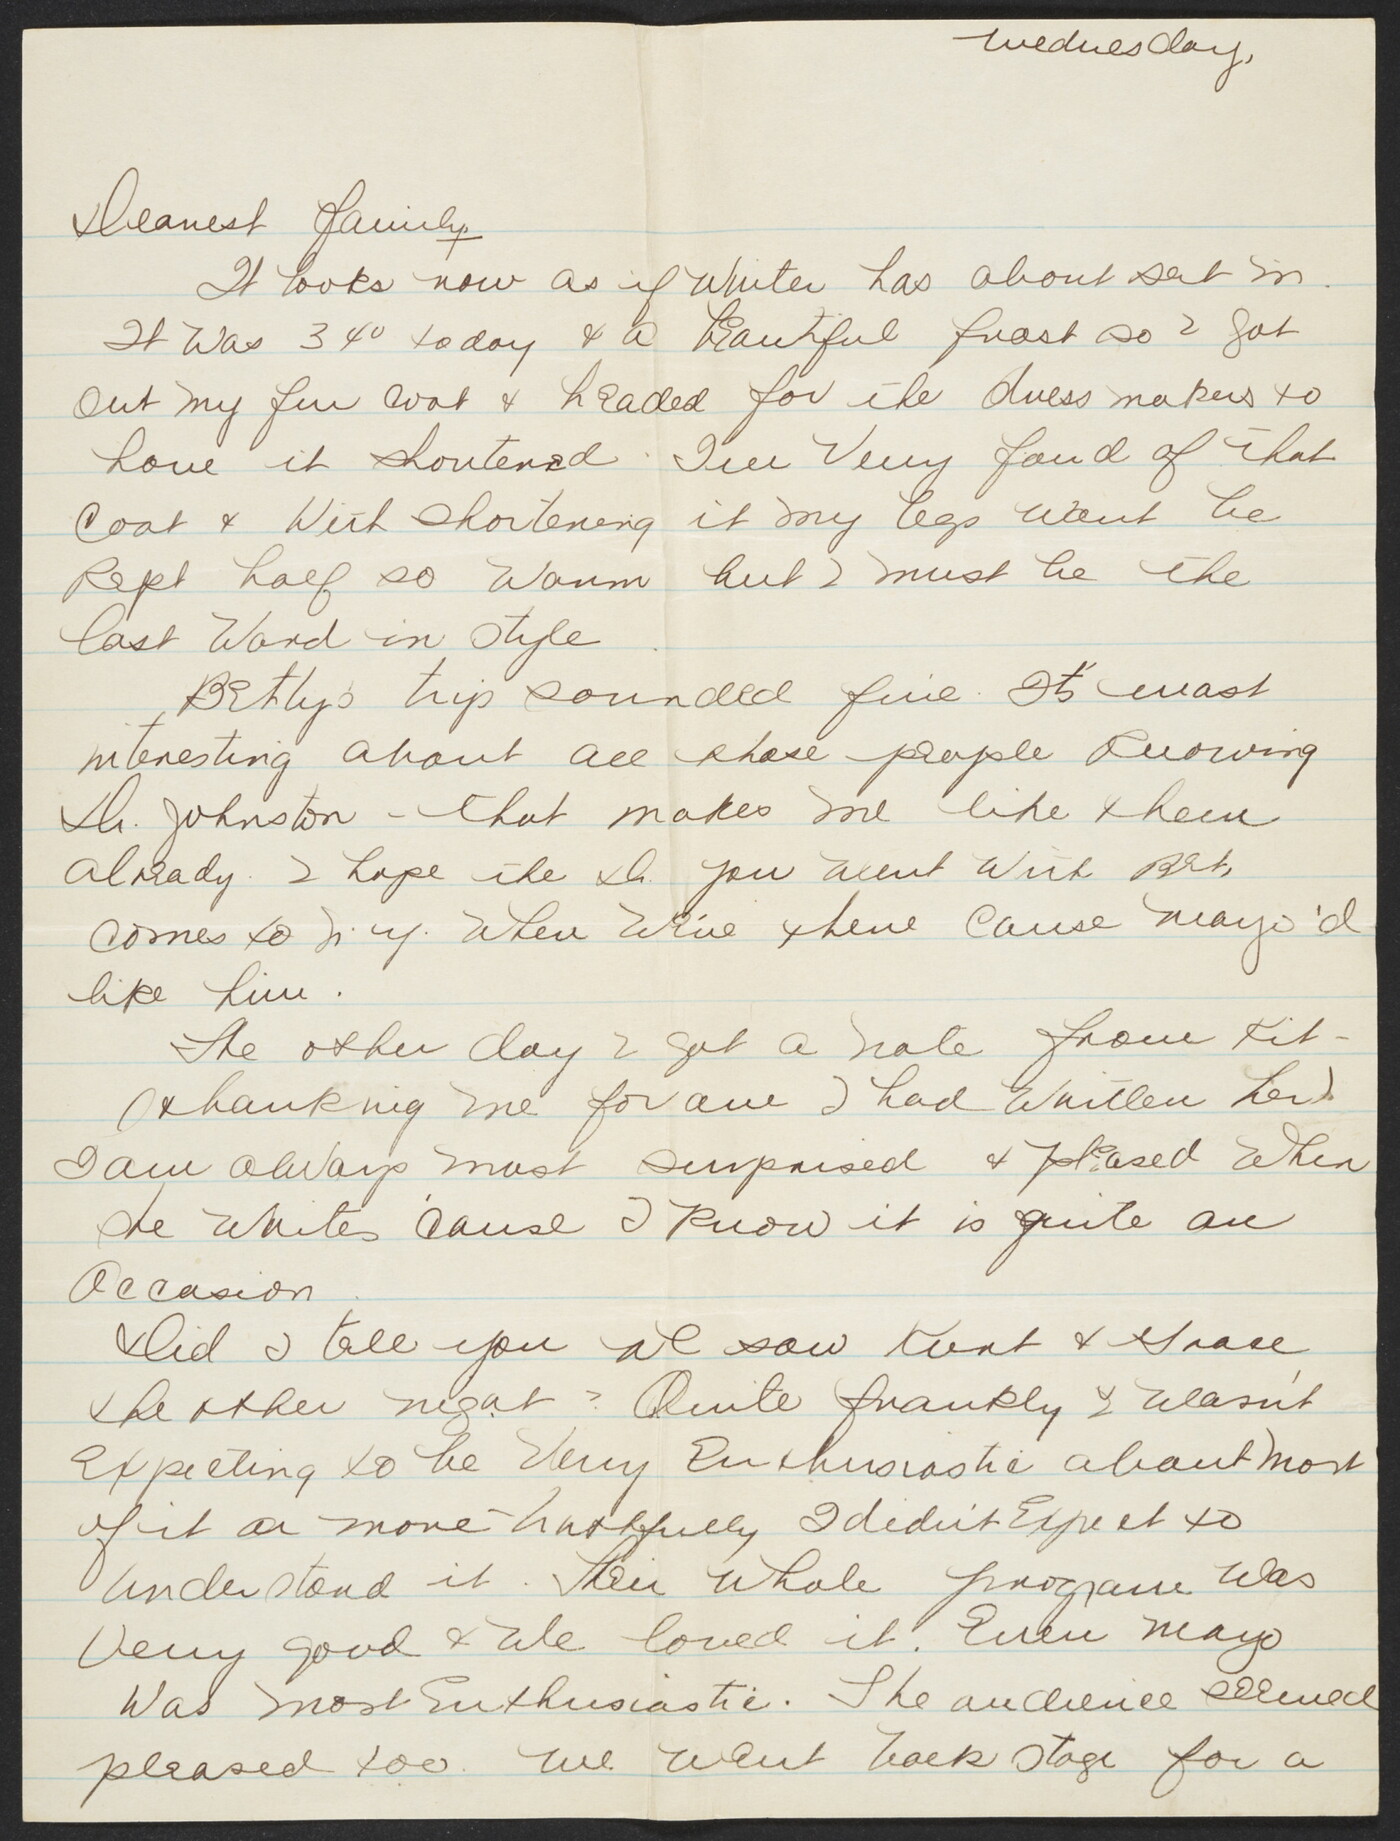 Wednesday,
Dearest family,
It looks now as if Winter has about set in.
It was 34° today & a beautiful frost so I got
out my fur coat & headed for the dress makers to
have it shortened. I'm very fond of that
coat & with shortening it my legs wont be
kept half so warm but I must be the
last word in style.
Betty's trip sounded fine. It's most
interesting about all those people knowing
Dr. Johnston - that makes me like them
already. I hope the Dr. you went with Bet,
comes to N.Y. when we're there cause Mayo'd
like him.
The other day I got a note from Kit -
(thanking me for one I had written her).
I am always most surprised & pleased when
she writes 'cause I know it is quite an
occasion.
Did I tell you we saw Kurt & Grace
the other night? Quite frankly I wasn't
expecting to be very enthusiastic about most
of it or more truthfully I didn't expect to
understand it. Their whole program was
very good & we loved it. Even Mayo
was most enthusiastic. The audience seemed
pleased too. We went back stage for a